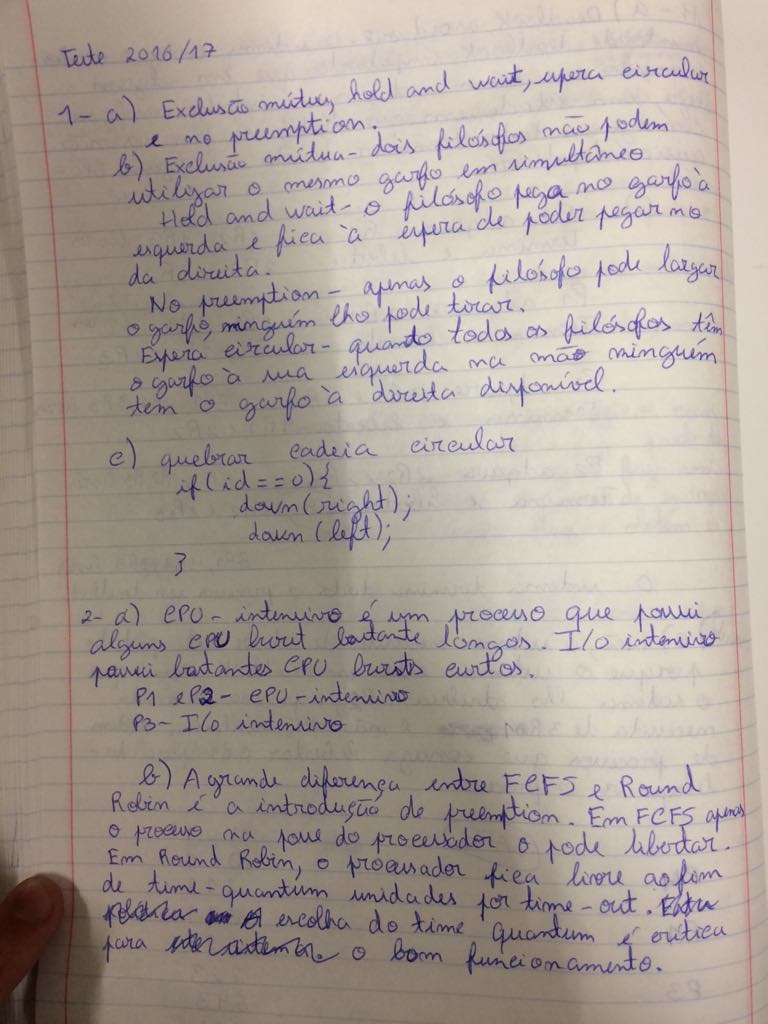 Teste 2016/17
1- a) Exclusão mútua, hold and wait, espera circular
e no preemption.
b) Exclusão mútua- dois filósofos não podem
utilizar o mesmo garfo em simultâneo
Hold and wait- o filósofo pega no garfo à
esquerda e fica à espera de poder pegar no
da direita.
No preemption- apenas o filósofo pode largar
o garfo, ninguém lho pode tirar.
Espera circular- quando todos os filósofos têm
o garfo à sua esquerda na mão ninguém
tem o garfo à direita disponível.
c) quebrar cadeia circular
if(id==0){
down(right);
down(left);
}
2- a) CPU-intensivo é um processo que possui
alguns CPU burst bastante longos. I/O intensivo
possui bastantes CPU bursts curtos.
P1 e P2- CPU-intensivo
P3- I/O intensivo
b) A grande diferença entre FCFS e Round
Robin é a introdução de preemption. Em FCFS apenas
o processo na posse do processador o pode libertar.
Em Round Robin, o processador fica livre ao fim
de time-quantum unidades por time-out.
A escolha do time quantum é crítica
para o bom funcionamento.